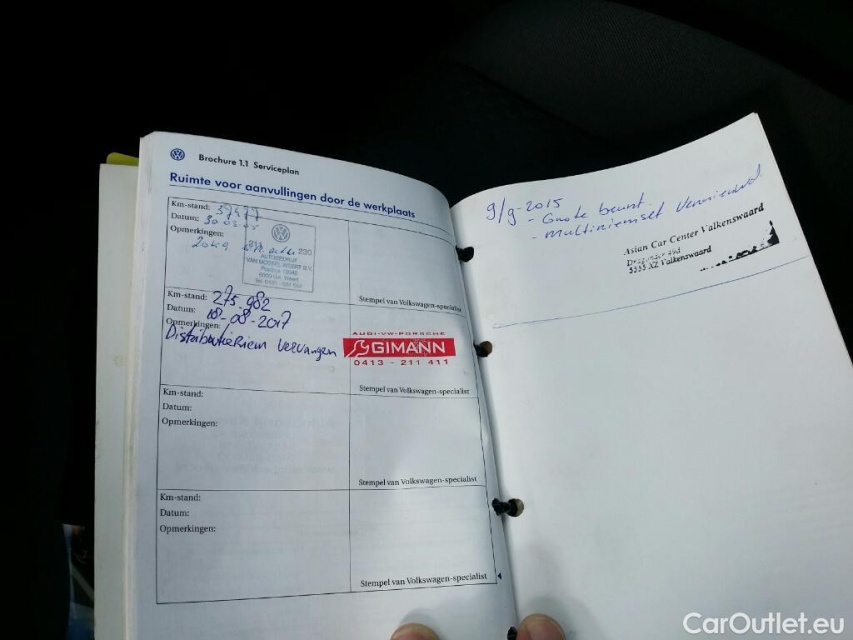 Brochure 1.1 Serviceplan
Ruimte voor aanvullingen door de werkplaats
Km-stand: 37477
Datum:
Opmerkingen:
AUTOBEDRIJF
Stempel van Volkswagen-specialist
Km-stand: 275.982
Datum: 18-08-2017
Opmerkingen:
Distributieriem vervangen
AUDI-VW-PORSCHE
GIMANN
0413 - 211 411
Stempel van Volkswagen-specialist
Km-stand:
Datum:
Opmerkingen:
Stempel van Volkswagen-specialist
Km-stand:
Datum:
Opmerkingen:
Stempel van Volkswagen-specialist
9/9-2015
- Grote beurt
- multiriemset Vernieuwd
Asian Car Center Valkenswaard
5555 XZ Valkenswaard
CarOutlet.eu